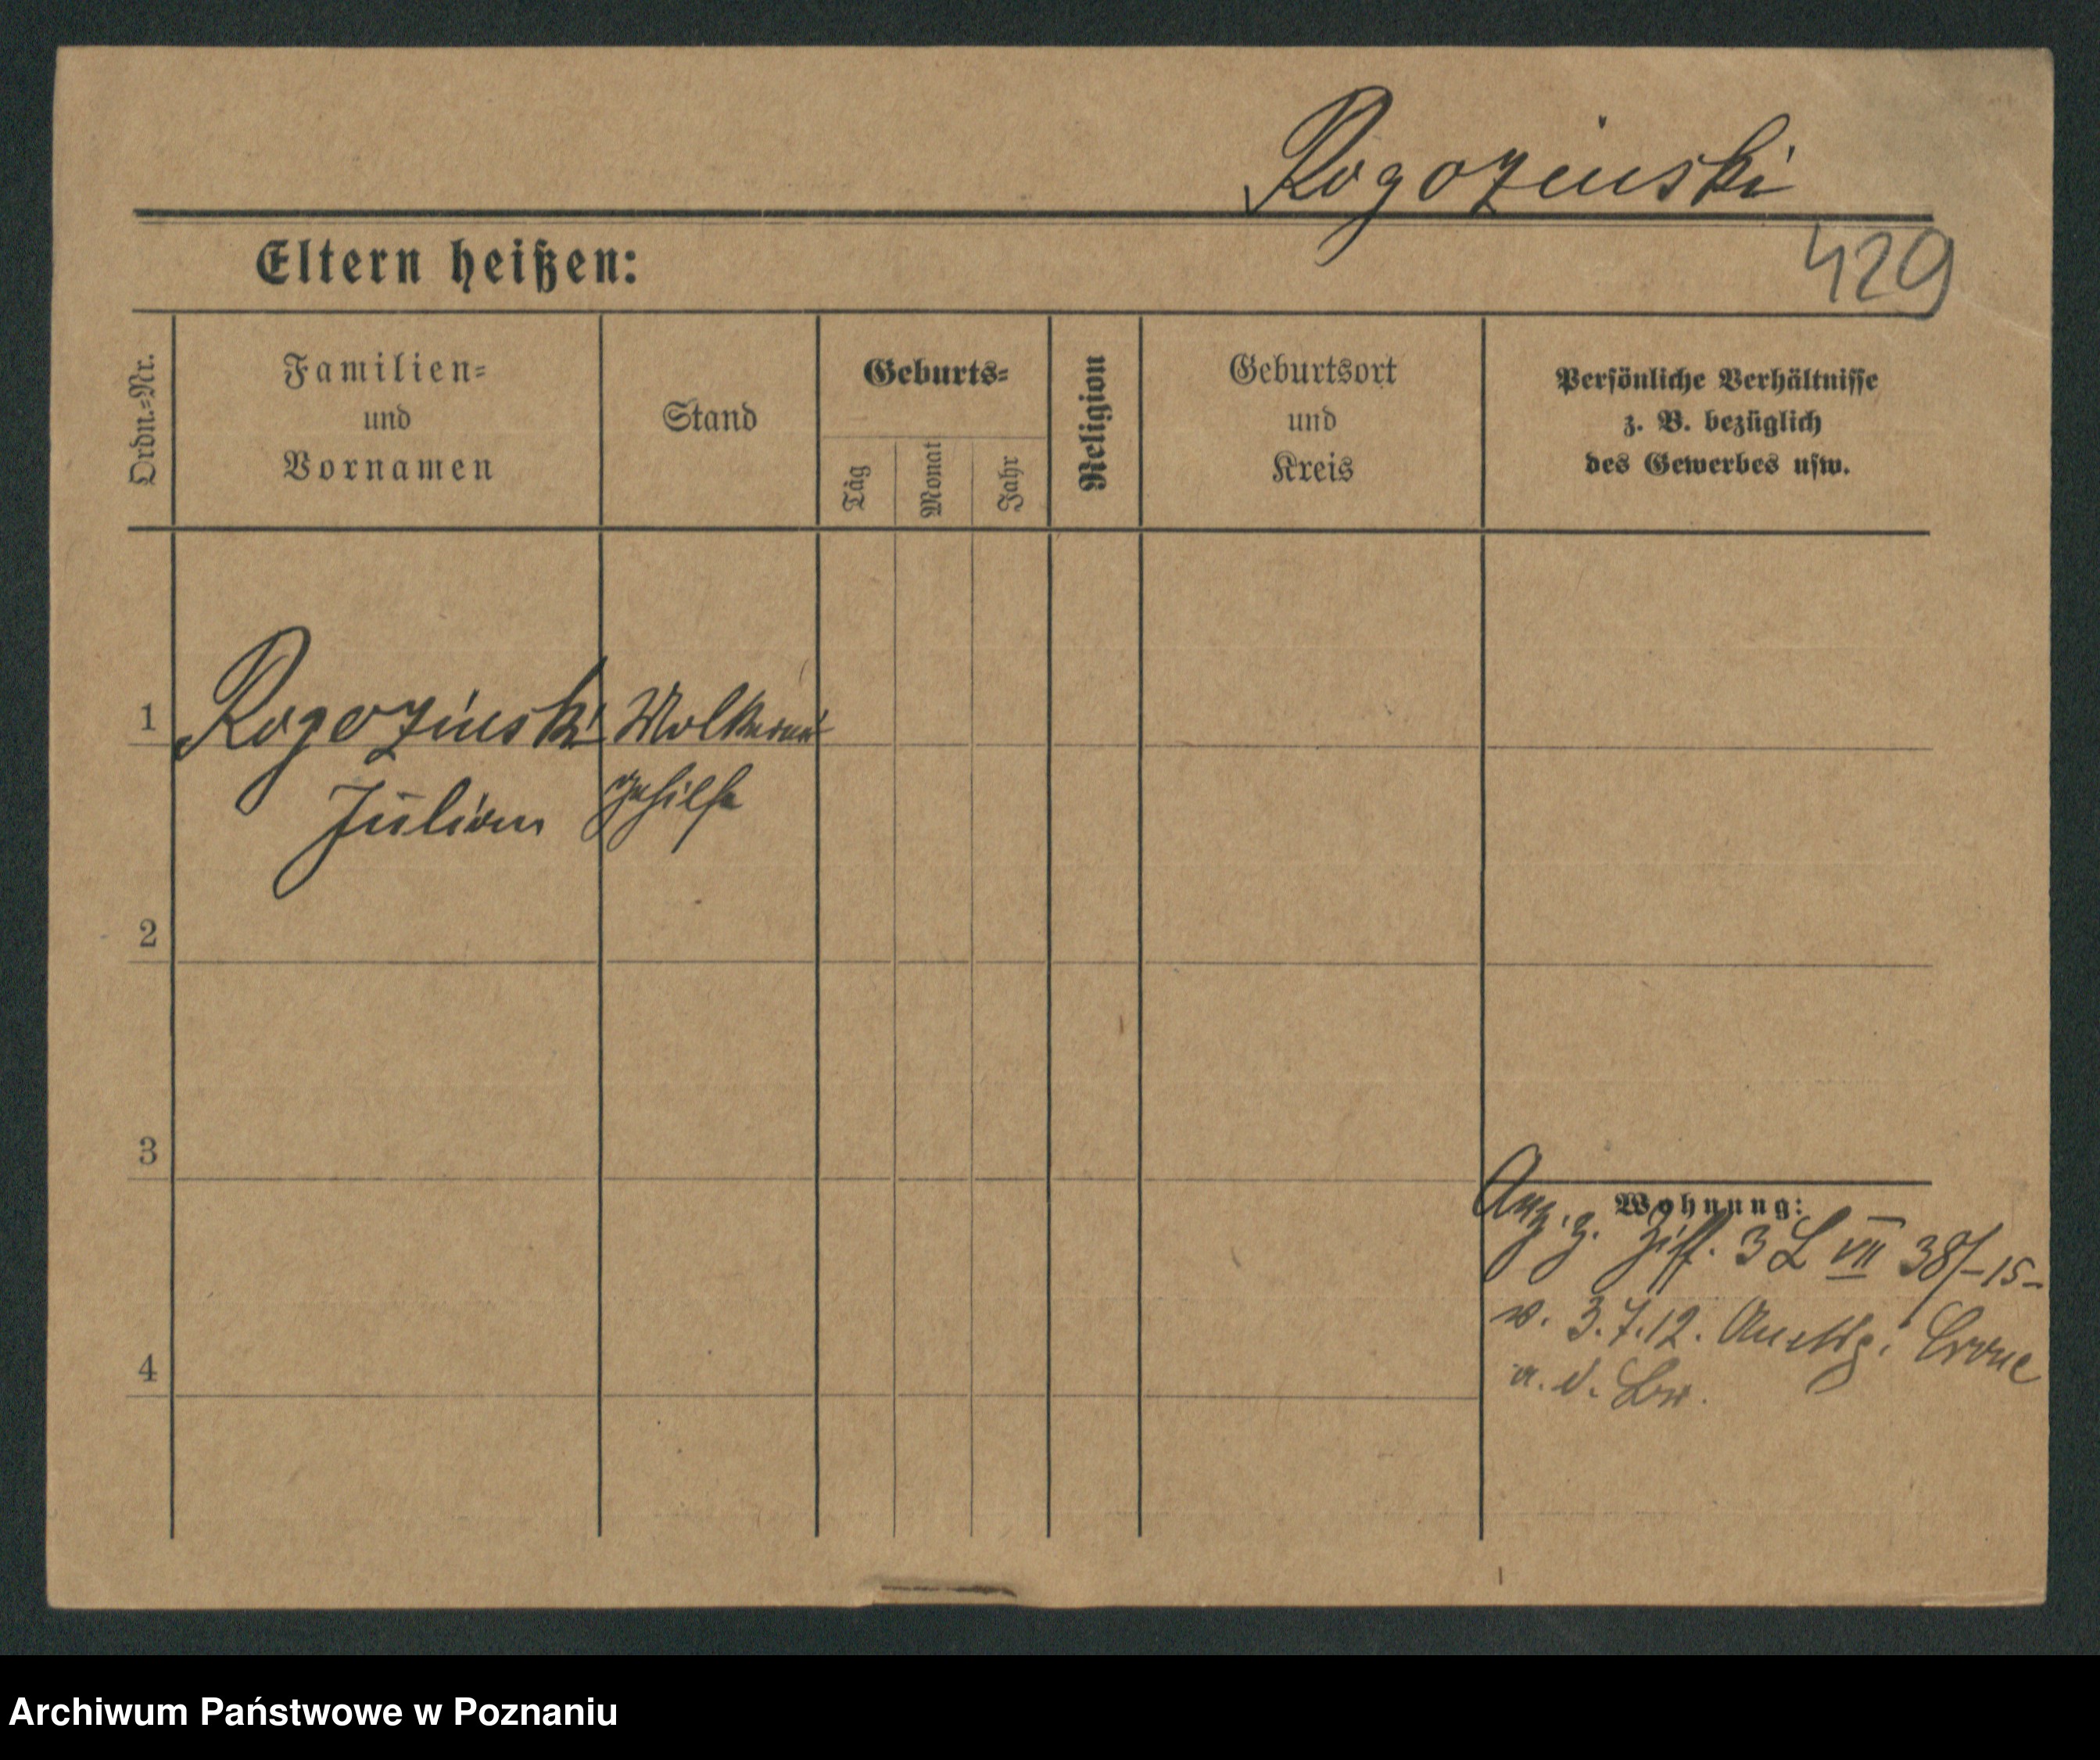 Rogozinski
429
Eltern heißen:
Ordn.-Nr.
Familien-
und
Vornamen
Stand
Geburts-
Tag
Monat
Jahr
Religion
Geburtsort
und
Kreis
Persönliche Verhältnisse
z. B. bezüglich
des Gewerbes usw.
1
Rogozinski Molkerei
Julian gehilfe
2
3
4
Wohnung:
Anz. z. Ziff. 3 L VII 38/-15-
v. 3.7.12. Crone
a. d. Br.
Archiwum Państwowe w Poznaniu